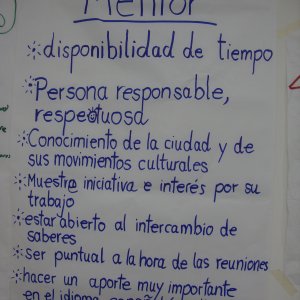 Mentor
disponibilidad de tiempo
Persona responsable,
respetuosa
Conocimiento de la ciudad y de
sus movimientos culturales
Muestra iniciativa e interés por su
trabajo
estar abierto al intercambio de
saberes
ser puntual a la hora de las reuniones
hacer un aporte muy importante
en el idioma